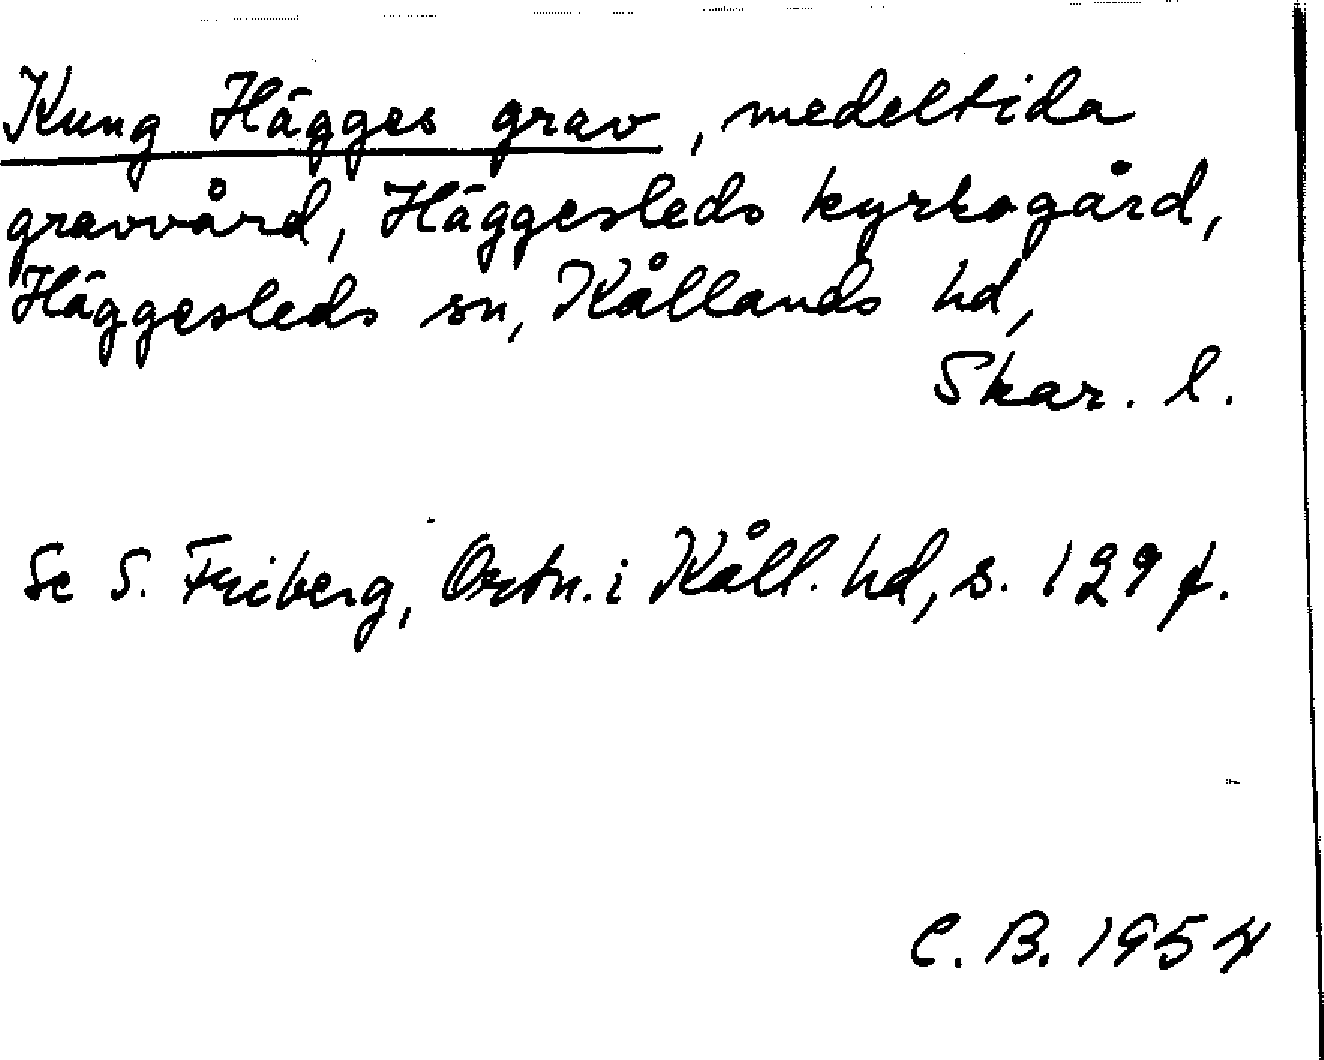 Kung Hägges grav, medeltida
gravvård, Häggesleds kyrkogård,
Häggesleds sn, Kållands hd,
Skar. l.
Se S. Friberg, Ortn. i Kåll. hd, s. 129 f.
C. B. 1954